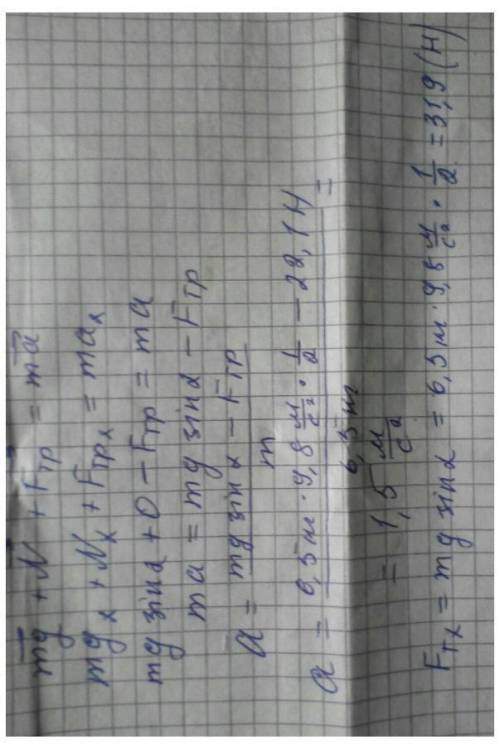 m̄g + N̄ + F̄тр = mā
mgₓ + Nₓ + Fтрₓ = maₓ
mg sinα + 0 − Fтр = ma
ma = mg sinα − Fтр
a = (mg sinα − Fтр)/m
a = (6,5 м · 9,8 м/с² · 1/2 − 22,1 Н)/(6,5 м) =
= 1,5 м/с²
Fтₓ = mg sinα = 6,5 м · 9,8 м/с² · 1/2 = 31,9 (Н)